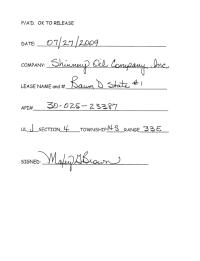 P/A'D. OK TO RELEASE
DATE: 07/27/2009
COMPANY: Shinnery Oil Company, Inc.
LEASE NAME and #: Baum D State #1
API# 30-025-23387
UL J SECTION 4 TOWNSHIP 14S RANGE 33E
SIGNED: Brown